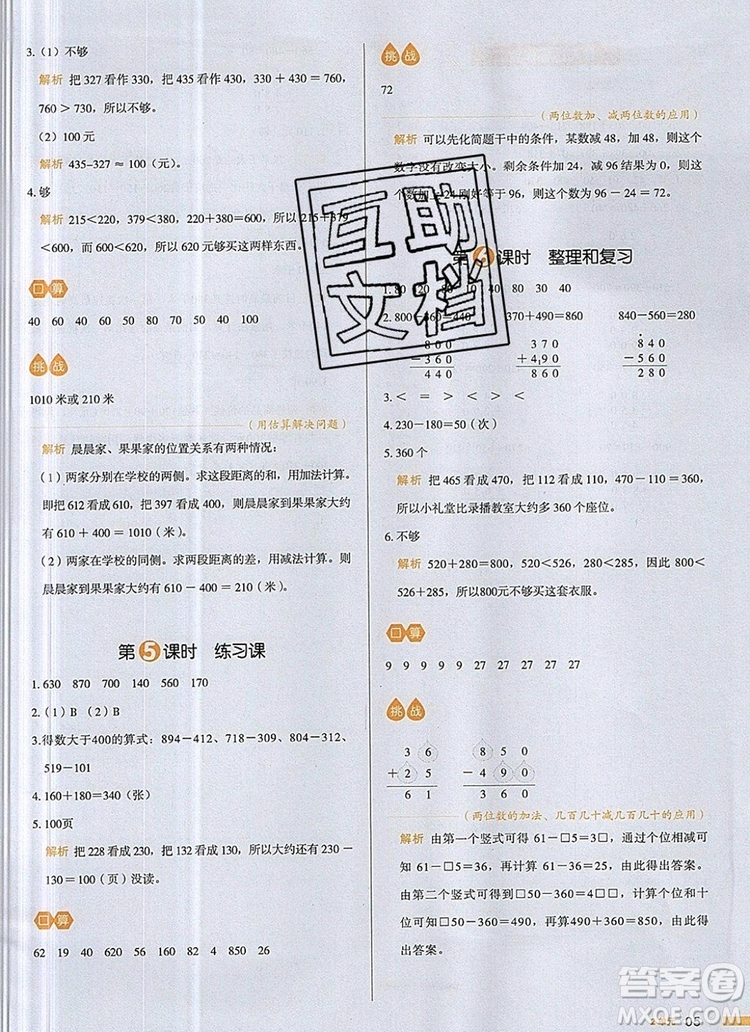 3.（1）不够
解析 把 327 看作 330，把 435 看作 430，430＋330＝760，
760＞730，所以不够。
（2）100元
解析 435-327≈100（元）。
4. 够
解析 215＜220，379＜380，220+380=600，所以215＋379
＜600，而 600＜620，所以 620元够买这两样东西。
口算
40 60 40 60 50 80 70 50 40 100
挑战
1010 米或 210 米
（用估算解决问题）
解析 晨晨家、果果家的位置关系有两种情况：
（1）两家分别在学校的两侧。求这段距离，用加法计算。
即把 612 看成 610，把 397 看成 400，晨晨家到果果家大约
有 610 + 400 = 1010（米）。
（2）两家在学校的同侧。求这两段距离的差，用减法计算。则
晨晨家到果果家大约有 610 − 400 = 210（米）。
第5课时 练习课
1. 630 870 700 140 560 170
2.（1）B （2）B
3. 得数大于400的算式：894−412、718−309、804−312、
519−101
4. 160+180=340（张）
5. 100页
解析 把 228 看成 230，把 132 看成 130，所以大约还有 230−
130=100（页）没读。
口算
62 19 40 620 56 160 82 4 850 26
挑战
72
（两位数加、减两位数的应用）
解析 可以先化简题干中的条件，某数减 48，加 48，则这个
数字没有改变大小。剩余条件加 24，减 96 变为 0，所以这
个数加上 24 刚好等于 96，所以这个数为 96−24=72。
第6课时 整理和复习
1. 80 120 40 80 40 30 40
370+490=860 840−560=280
800
−360
440
370
+490
860
840
−560
280
3. ＜ ＜ ＝ ＞ ＞ ＞
4. 230−180=50（次）
5. 360 个
解析 把 465 看成 470，把 107 看成 110，470−110=360，
所以小礼堂比录播教室大约多 360 个座位。
6. 不够
解析 520+280=800，526>520，285>280，因此 800<
526+285，所以800元不够买这套衣服。
口算
9 9 9 9 9 27 27 27 27 27
挑战
36
+25
61
850
−490
360
（两位数的加法、几百几十减几百几十的应用）
解析 由第一个竖式可得 61−□5=3□，通过计算个位可
得 61−□5=36，再计算 61−36=25。由此得出答案。
由第二个竖式可得□50−360=4□□，计算个位和十
位可得□50−360=490，再计算490+360=850。由此得
出答案。
互助
文档
答案圈
MXQE.COM
05